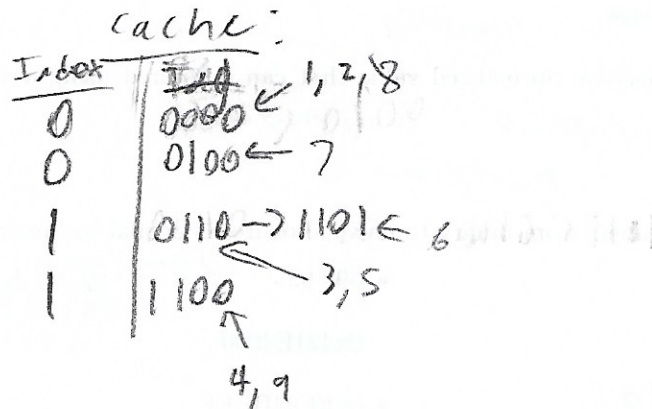 cache:
Index Tag
0 0000 ← 1, 2, 8
0 0100 ← 7
1 0110 → 1101 ← 6
3, 5
1 1100
4, 9